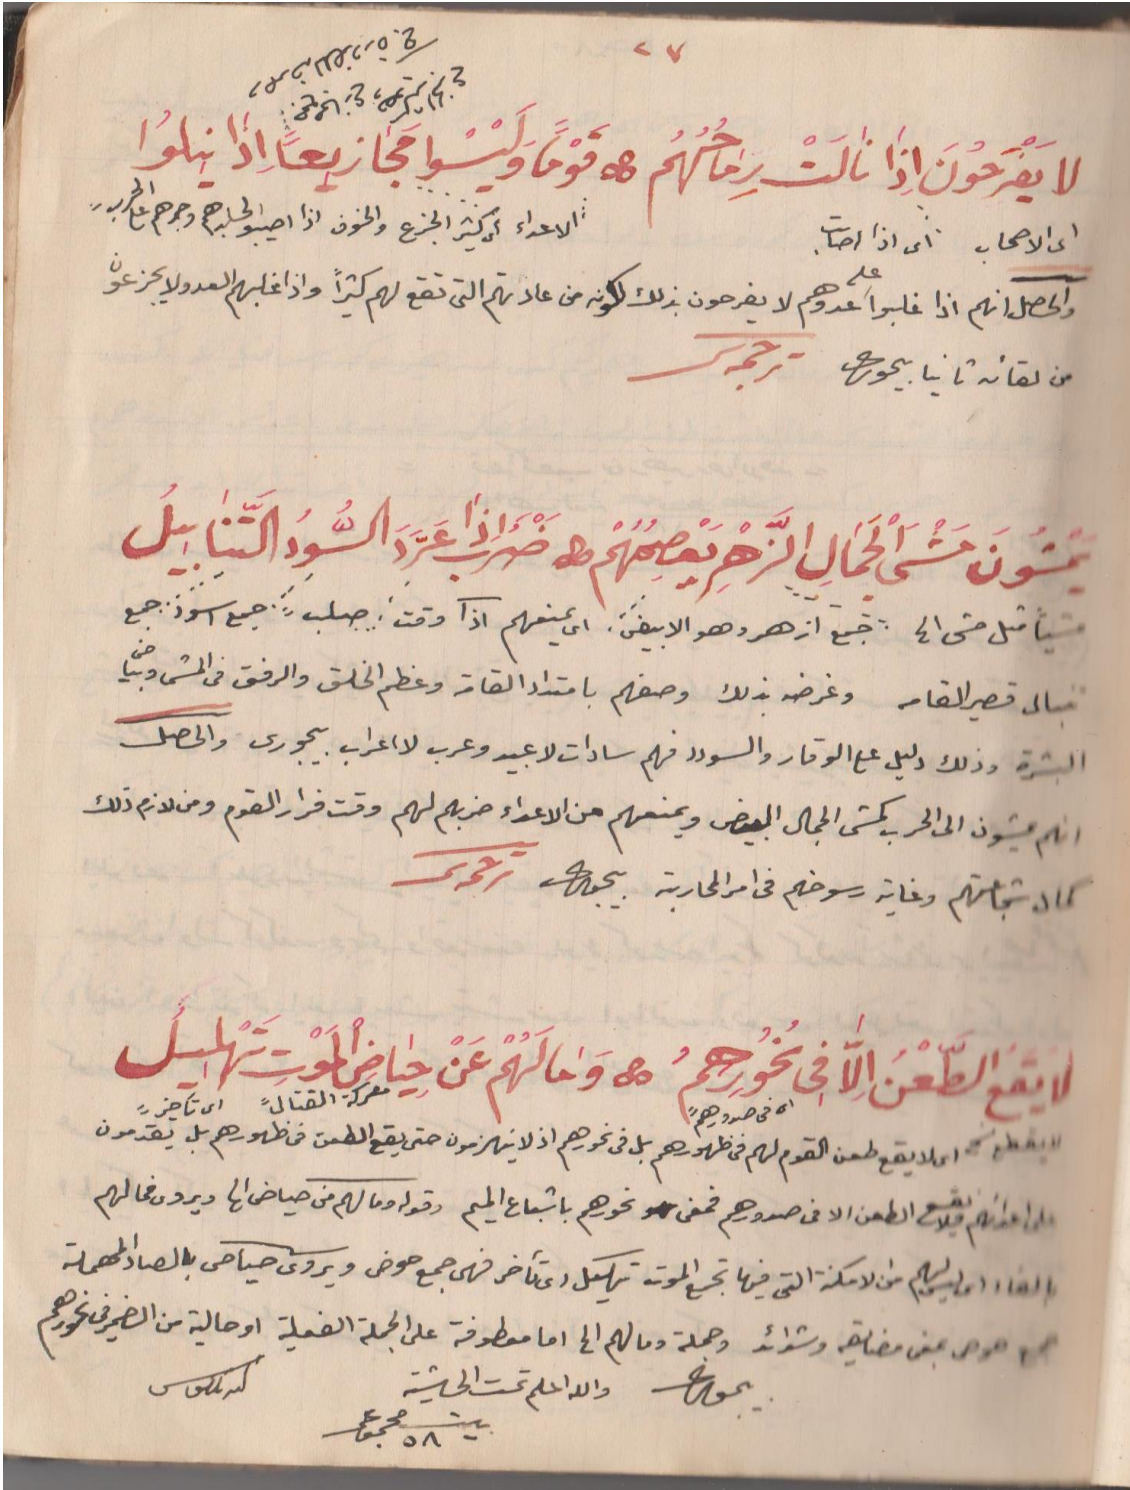 ٢٧
لا يَفْرَحُونَ اِذَا نَالَتْ رِمَاحُهُمُ قَوْمًا وَلَيْسُوا مَجَازِيعًا اِذَا نِيلُوا
اى الاصحاب اى اذا اصابت الاعداء اى كثير الجزع والخوف اذا اصيبوا
والحاصل انهم اذا غلبوا على عدوهم لا يفرحون بذلك لكونه من عادتهم التى تقع لهم كثيراً واذا غلبهم العدو لا يجزعون
من لقائه ثانيا بيجورى ترجمه سى
يَمْشُونَ مَشْىَ الْجِمَالِ الزُّهْرِ يَعْصِمُهُمْ ضَرْبٌ اِذَا عَرَّدَ السُّودُ التَّنَابِيلُ
مشياً مثل مشى الخ جمع ازهر وهو الابيض اى يمنعهم اذا وقت جمع اسود جمع
تنبال قصير القامه وغرضه بذلك وصفهم بامتداد القامة وعظم الخلق والرفق فى المشى وبياض
البشرة وذلك دليل على الوقار والسودد فهم سادات لا عبيد وعرب لا اعراب بيجورى والحاصل
انهم يمشون الى الحرب كمشى الجمال البيض ويمنعهم من الاعداء ضربهم لهم وقت فرار القوم ومن لازم ذلك
كمال شجاعتهم وغاية رسوخهم فى امر المحاربة بيجورى ترجمه سى
لا يَقَعُ الطَّعْنُ اِلَّا فِى نُحُورِهِمُ وَمَا لَهُمْ عَنْ حِيَاضِ الْمَوْتِ تَهْلِيلُ
اى فى صدورهم معركة القتال اى تأخير
اى لا يقع طعن القوم لهم فى ظهورهم بل فى نحورهم اذ لا ينهزمون حتى يقع الطعن فى ظهورهم بل يقدمون
على اعدائهم فلا يقع الطعن الا فى صدورهم فمعنى نحورهم باشباع الميم وقوله وما لهم عن حياض الخ ويروى فما لهم
بالفاء اى ليس لهم عن الامكنة التى فيها تجمع الموت تهليل اى تأخر فهى جمع حوض ويروى حياص بالصاد المهملة
جمع حوص بمعنى مضايقه وشدائد وجملة وما لهم الخ اما معطوفة على الجملة الفعلية او حالية من الضمير فى نحورهم
بيجورى والله اعلم تمت الحاشية
بيت مجموعى
٥٨